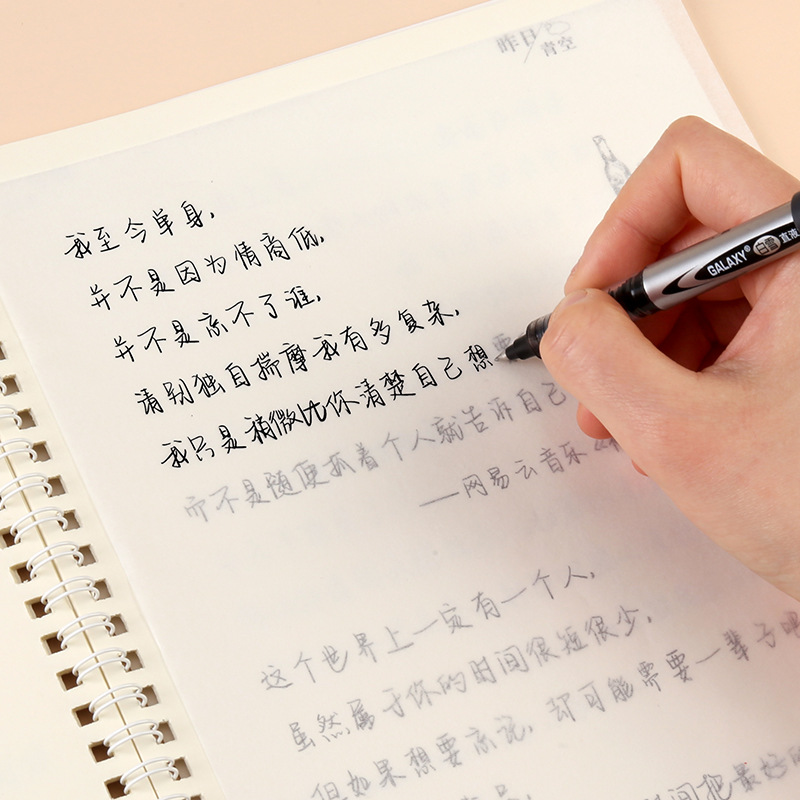 昨日
青空
我至今单身,
并不是因为情商低,
并不是忘不了谁,
请别独自揣摩我有多复杂,
我只是稍微比你清楚自己想要
而不是随便抓着个人就告诉自己
——网易云音乐《
这个世界上一定有一个人,
虽然属于你的时间很短很少,
但如果想要忘记, 却可能需要一辈子吧
时间把最好的
GALAXY® 白雪 直液